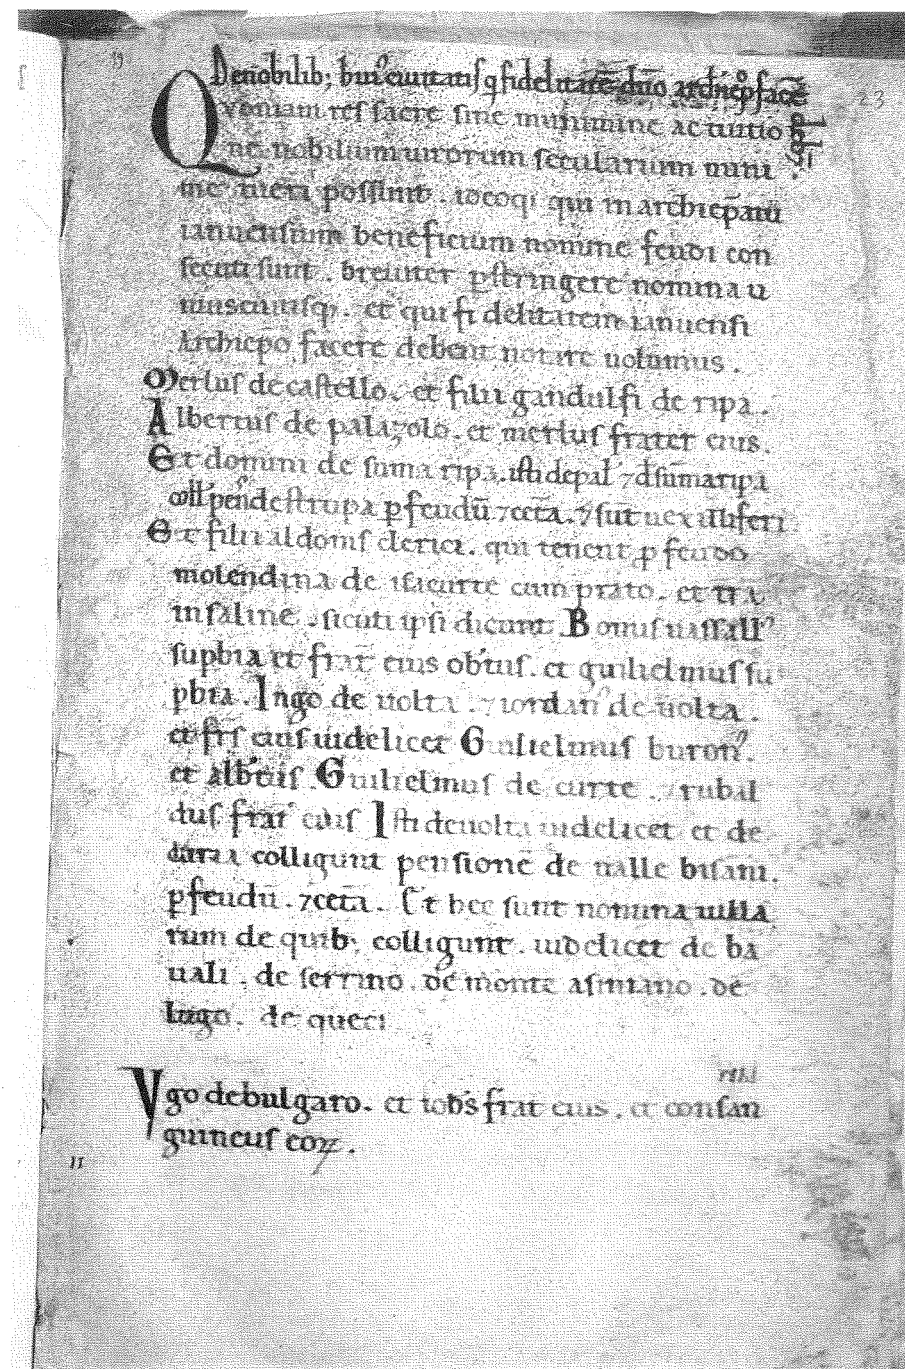 23
De nobilib; huiꝰ ciuitatis q̄ fidelitatē dn̄o archiep̄o facē
deb
Quoniam res sacre sine munimine ac tuitio
ne nobilium uirorum secularium mini
me tueri possunt. iccoqi qui in archiep̄atu
ianuensium beneficium nomine feudi con
secuti sunt. breuiter p̱stringere nomina u
niuscuiusq;. et qui fidelitatem ianuensi
Archiep̄o facere debent notare uolumus.
Merlus de castello. et filii gandulfi de ripa.
Albertus de palazolo. et merlus frater eius.
Et domini de suma ripa. isti de pal̄ ⁊ d̄ sūmaripa
coll̄ pen̄ destrupa ꝑ feudū ⁊ cetā. ⁊ sūt
Et filii aldonis clerici. qui tenent ꝓ feudo
molendina de isacurte cum prato. et t̄ra
in saline. sicuti ipsi dicunt. Bonusuassallꝰ
supbia et frat̄ eius ob̄tus. et guilielmus su
pbia. Ingo de uolta. ⁊ iordanꝰ de uolta.
et fr̄s eius uidelicet Guilielmus buronꝰ.
et alb̄tus. Guilielmus de curte. ⁊ rubal
dus frat̄ eius Isti de uolta uidelicet et de
curia colligunt pensionē de ualle bisani.
ꝑ feudū. ⁊ cetā. Et hec sunt nomina uilla
rum de quib; colligunt. uidelicet de ba
uali. de serrino. de monte asiniano. de
lugo. de queci
Vgo de bulgaro. et ioh̄s frat̄ eius. et consan
guineus eoꝝ.
11